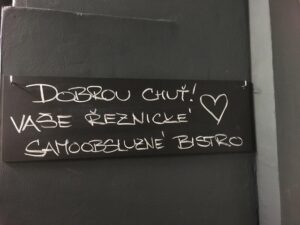 DOBROU CHUŤ!
VAŠE ŘEZNICKÉ
SAMOOBSLUŽNÉ BISTRO